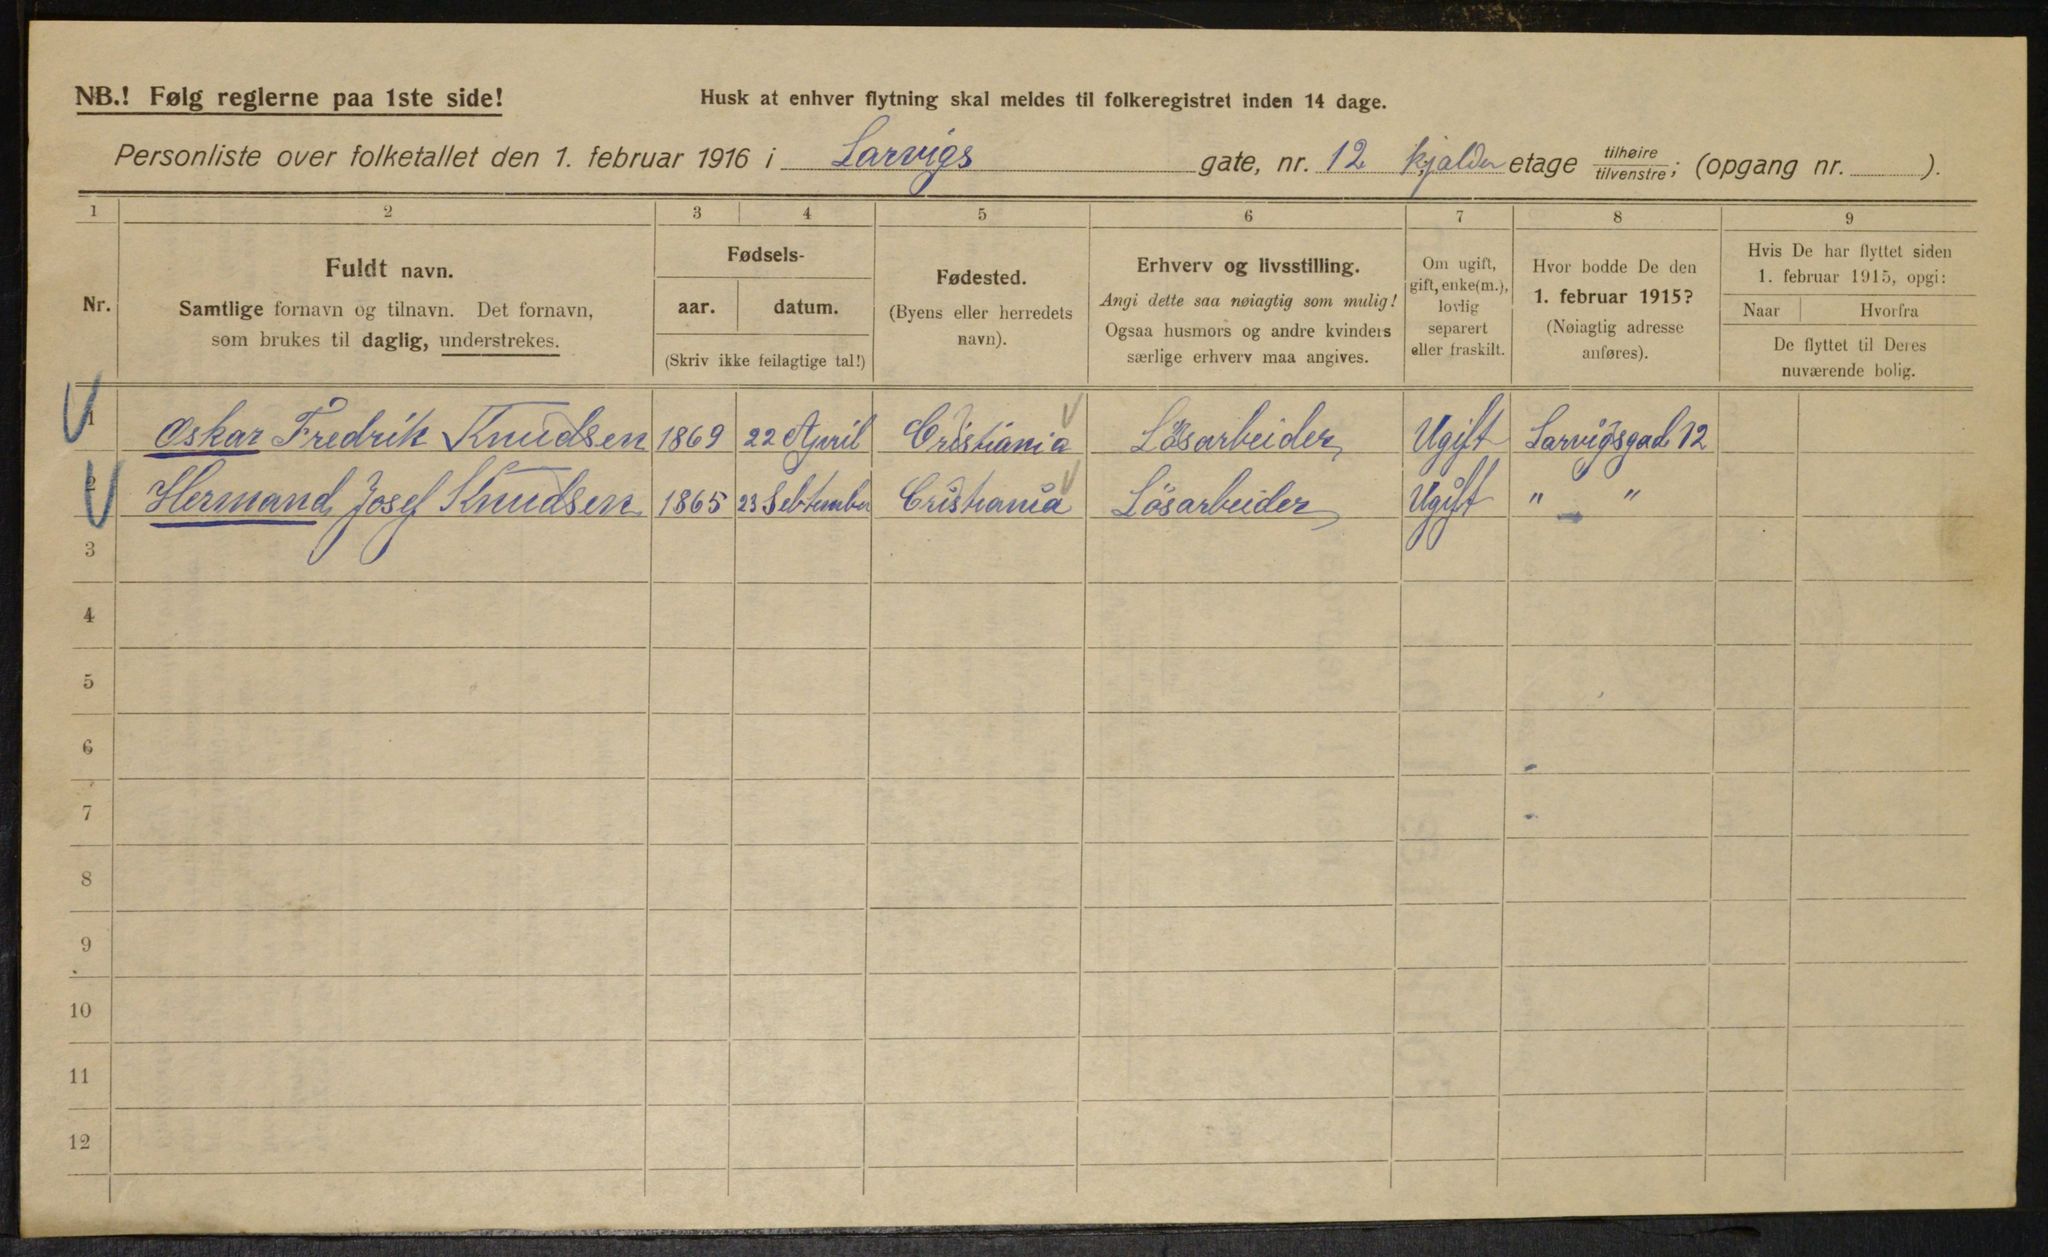 NB.! Følg reglerne paa 1ste side!
Husk at enhver flytning skal meldes til folkeregistret inden 14 dage.
Personliste over folketallet den 1. februar 1916 i Larvigs gate, nr. 12 kjalder etage tilhøire / tilvenstre; (opgang nr. ).
1 2 3 4 5 6 7 8 9
Nr.
Fuldt navn.
Samtlige fornavn og tilnavn. Det fornavn,
som brukes til daglig, understrekes.
Fødsels-
aar. datum.
(Skriv ikke feilagtige tal!)
Fødested.
(Byens eller herredets
navn).
Erhverv og livsstilling.
Angi dette saa nøiagtig som mulig!
Ogsaa husmors og andre kvinders
særlige erhverv maa angives.
Om ugift,
gift, enke(m.),
lovlig
separert
eller fraskilt.
Hvor bodde De den
1. februar 1915?
(Nøiagtig adresse
anføres).
Hvis De har flyttet siden
1. februar 1915, opgi:
Naar Hvorfra
De flyttet til Deres
nuværende bolig.
1 Oskar Fredrik Knudsen 1869 22 April Cristiania Lösarbeider Ugift Larvigsgad 12
2 Hermand Josef Knudsen 1865 23 Sebtember Cristiania Lösarbeider Ugift " "
3
4
5
6
7
8
9
10
11
12